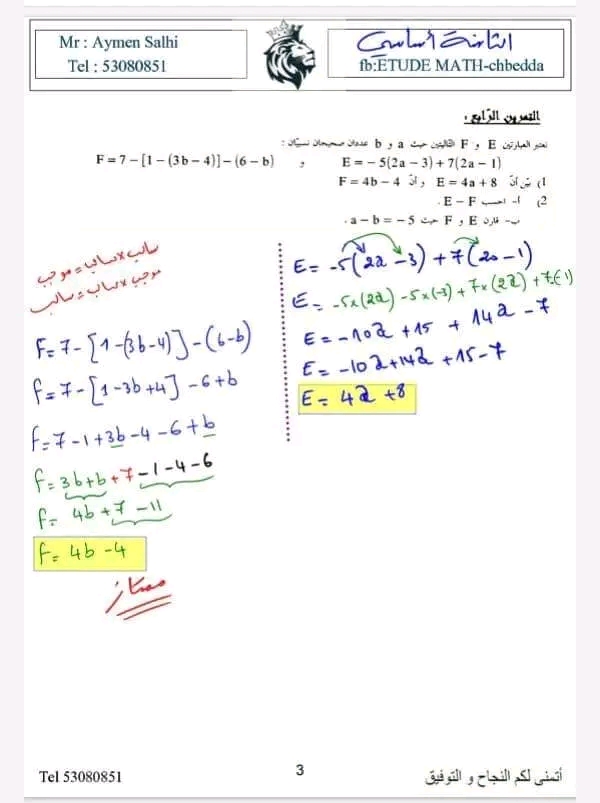 Mr : Aymen Salhi
Tel : 53080851
الثامنة أساسي
fb:ETUDE MATH-chbedda
التمرين الرّابع :
نعتبر العبارتين E و F التاليتين حيث a و b عددان صحيحان نسبيّان :
E = – 5(2a – 3) + 7(2a – 1) و F = 7 – [1 – (3b – 4)] – (6 – b)
1) بيّن أنّ E = 4a + 8 و أنّ F = 4b – 4
2) أ- احسب E – F .
ب- قارن E و F حيث a – b = – 5 .
سالب x سالب = موجب
موجب x سالب = سالب
E = -5(2a -3) +7(2a -1)
E = -5x(2a) -5x(-3) +7x(2a) +7x(-1)
E = -10a +15 + 14a -7
E = -10a +14a +15 -7
E = 4a +8
F = 7 - [1 -(3b -4)] -(6-b)
F = 7 - [1 -3b +4] -6 +b
F = 7 -1 +3b -4 -6 +b
F = 3b +b +7 -1 -4 -6
F = 4b +7 -11
F = 4b -4
ممتاز
Tel 53080851
3
أتمنى لكم النجاح و التوفيق